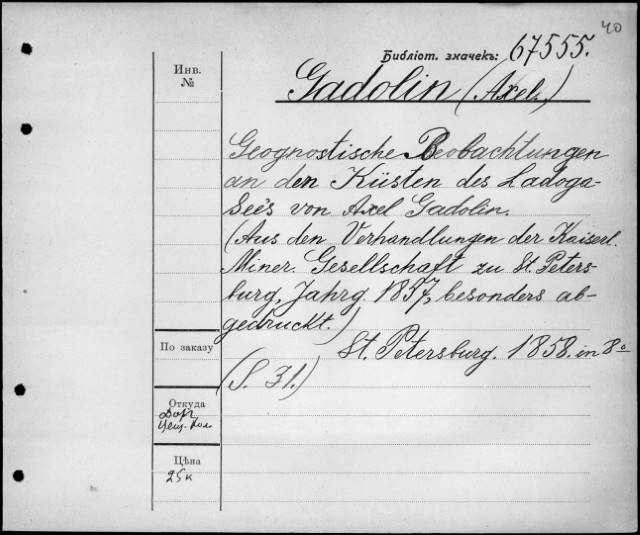 40
Библіот. значекъ: 67555.
Инв.
№
Gadolin (Axel.)
Geognostische Beobachtungen
an den Küsten des Ladoga-
See's von Axel Gadolin.
(Aus den Verhandlungen der Kaiserl.
Miner. Gesellschaft zu St. Peters-
burg, Jahrg. 1857, besonders ab-
gedruckt.)
St. Petersburg. 1858. in 8°
(S. 31.)
По заказу
Откуда
Цѣна
25 к